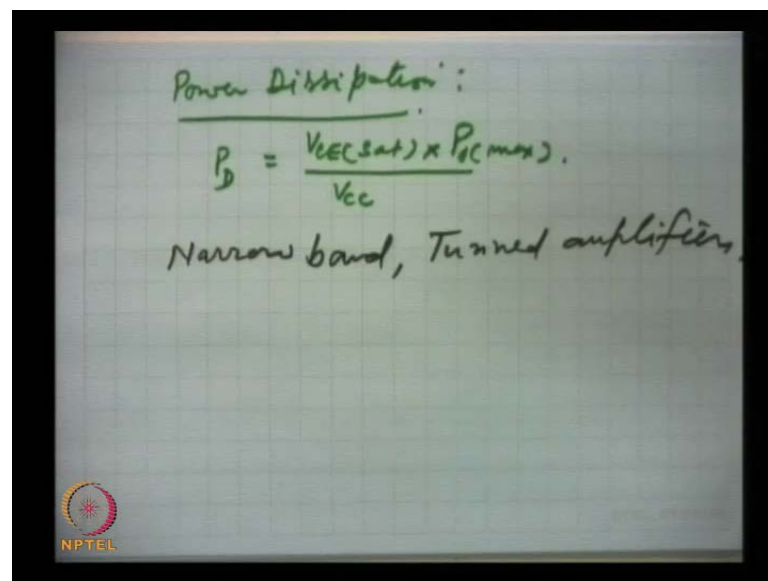 Power Dissipation :
P_D = V_CE(sat) × P_o(max).
V_CC
Narrow band, Tunned amplifiers,
NPTEL